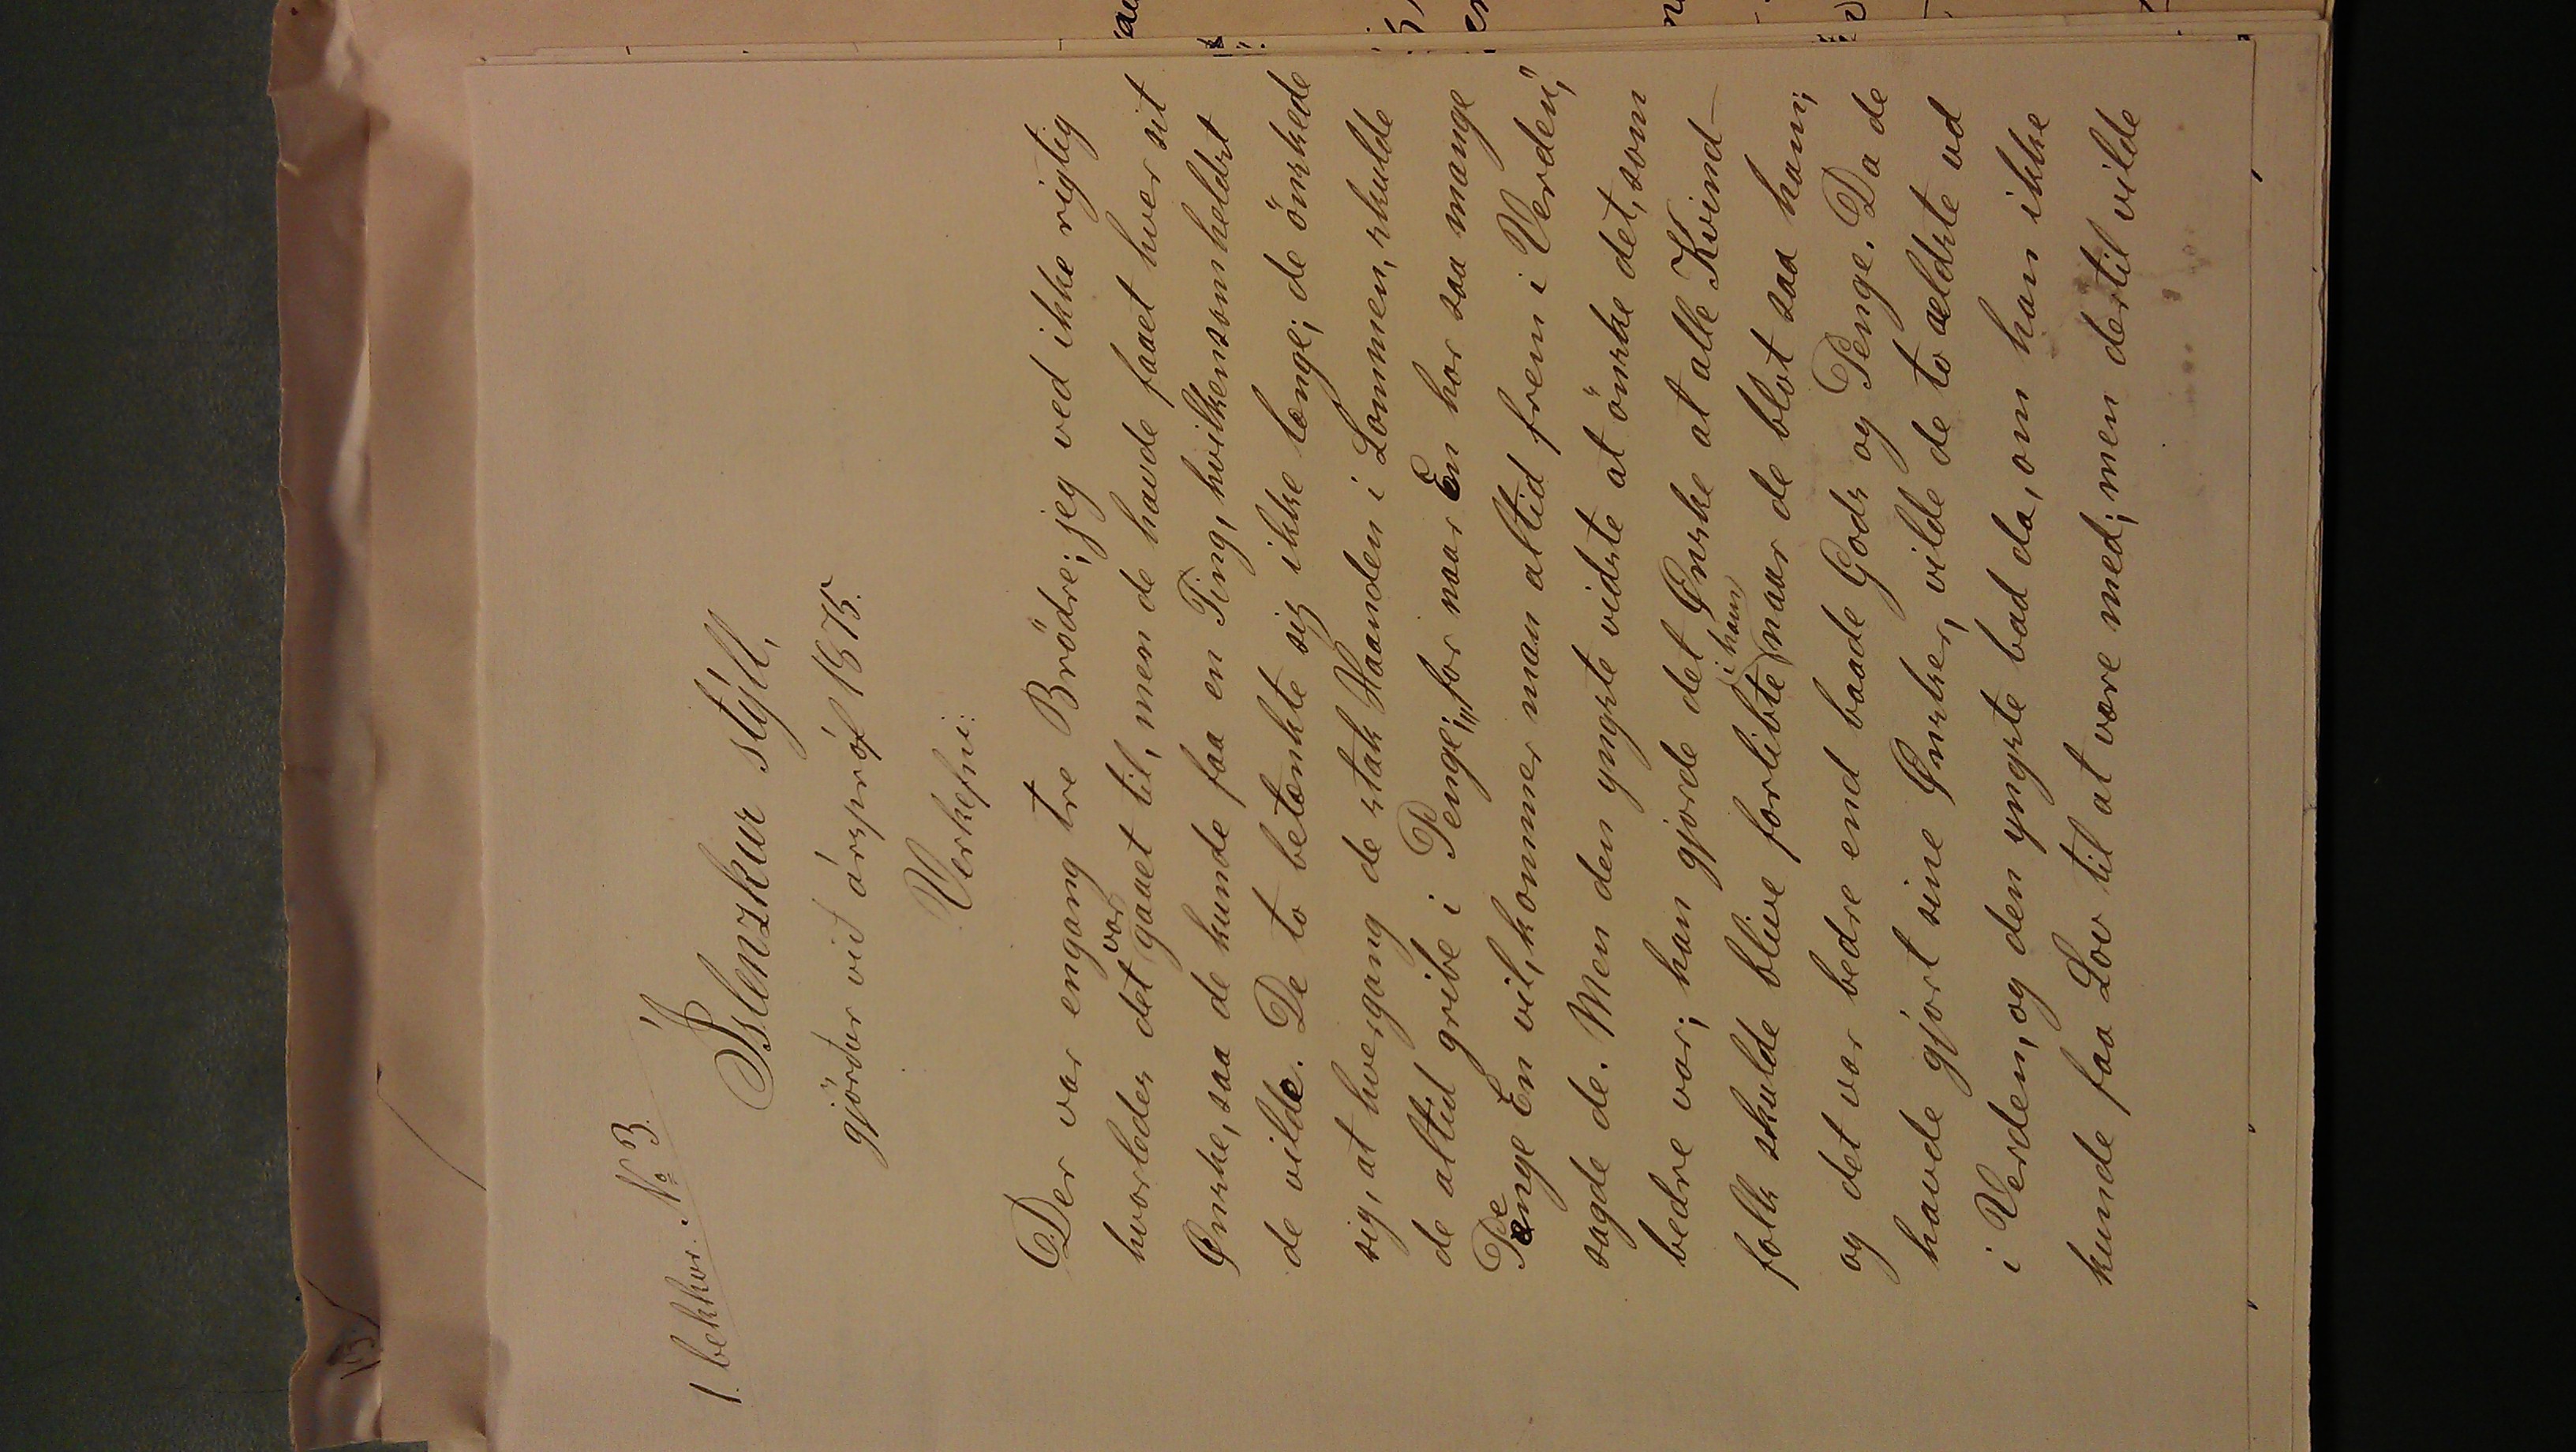 1. bekkur. No 3.
Íslenzkur stýll,
gjörður við árspróf 1875.
Verkefni:
Der var engang tre Brödre; jeg ved ikke rigtig
hvorledes det var gaaet til, men de havde faaet hver sit
Ønske, saa de kunde faa en Ting, hvilkensomheldst
de vilde. De to betænkte sig ikke længe; de önskede
sig, at hvergang de stak Haanden i Lommen, skulde
de altid gribe i Penge; „for naar En har saa mange
Penge En vil, kommer man altid frem i Verden“,
sagde de. Men den yngste vidste at önske det, som
bedre var; han gjorde det Ønske at alle Kvind-
folk skulde blive forlibte i ham naar de blot saa ham;
og det var bedre end baade Gods og Penge. Da de
havde gjort sine Ønsker, vilde de to ældste ud
i Verden, og den yngste bad da, om han ikke
kunde faa Lov til at være med; men dertil vilde